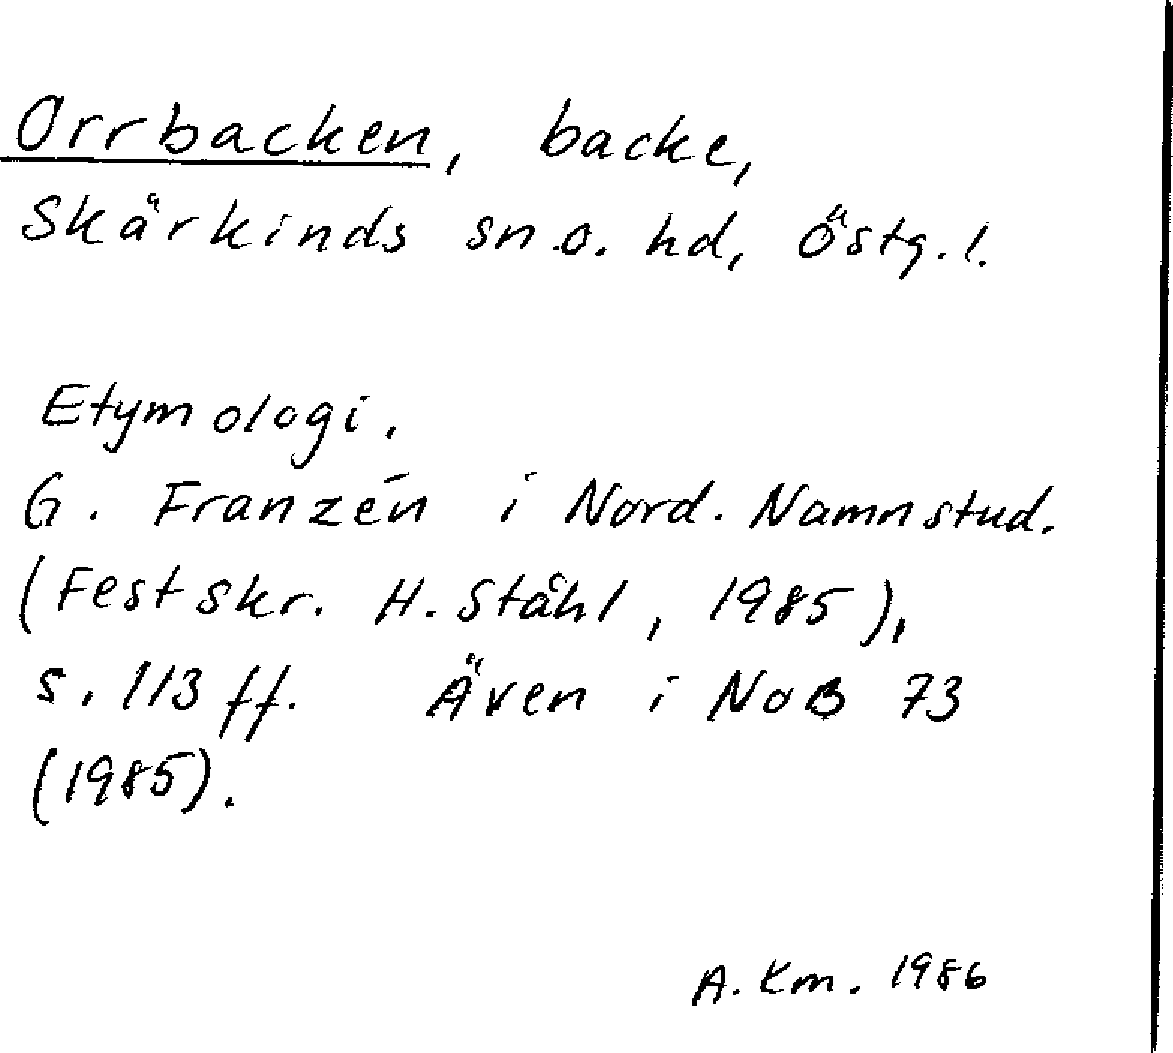 Orrbacken, backe,
Skärkinds sn.o. hd, Östg.l.
Etymologi.
G. Franzén i Nord. Namnstud.
(Festskr. H. Ståhl, 1985),
s. 113 ff. Även i NoB 73
(1985).
A. Km. 1986